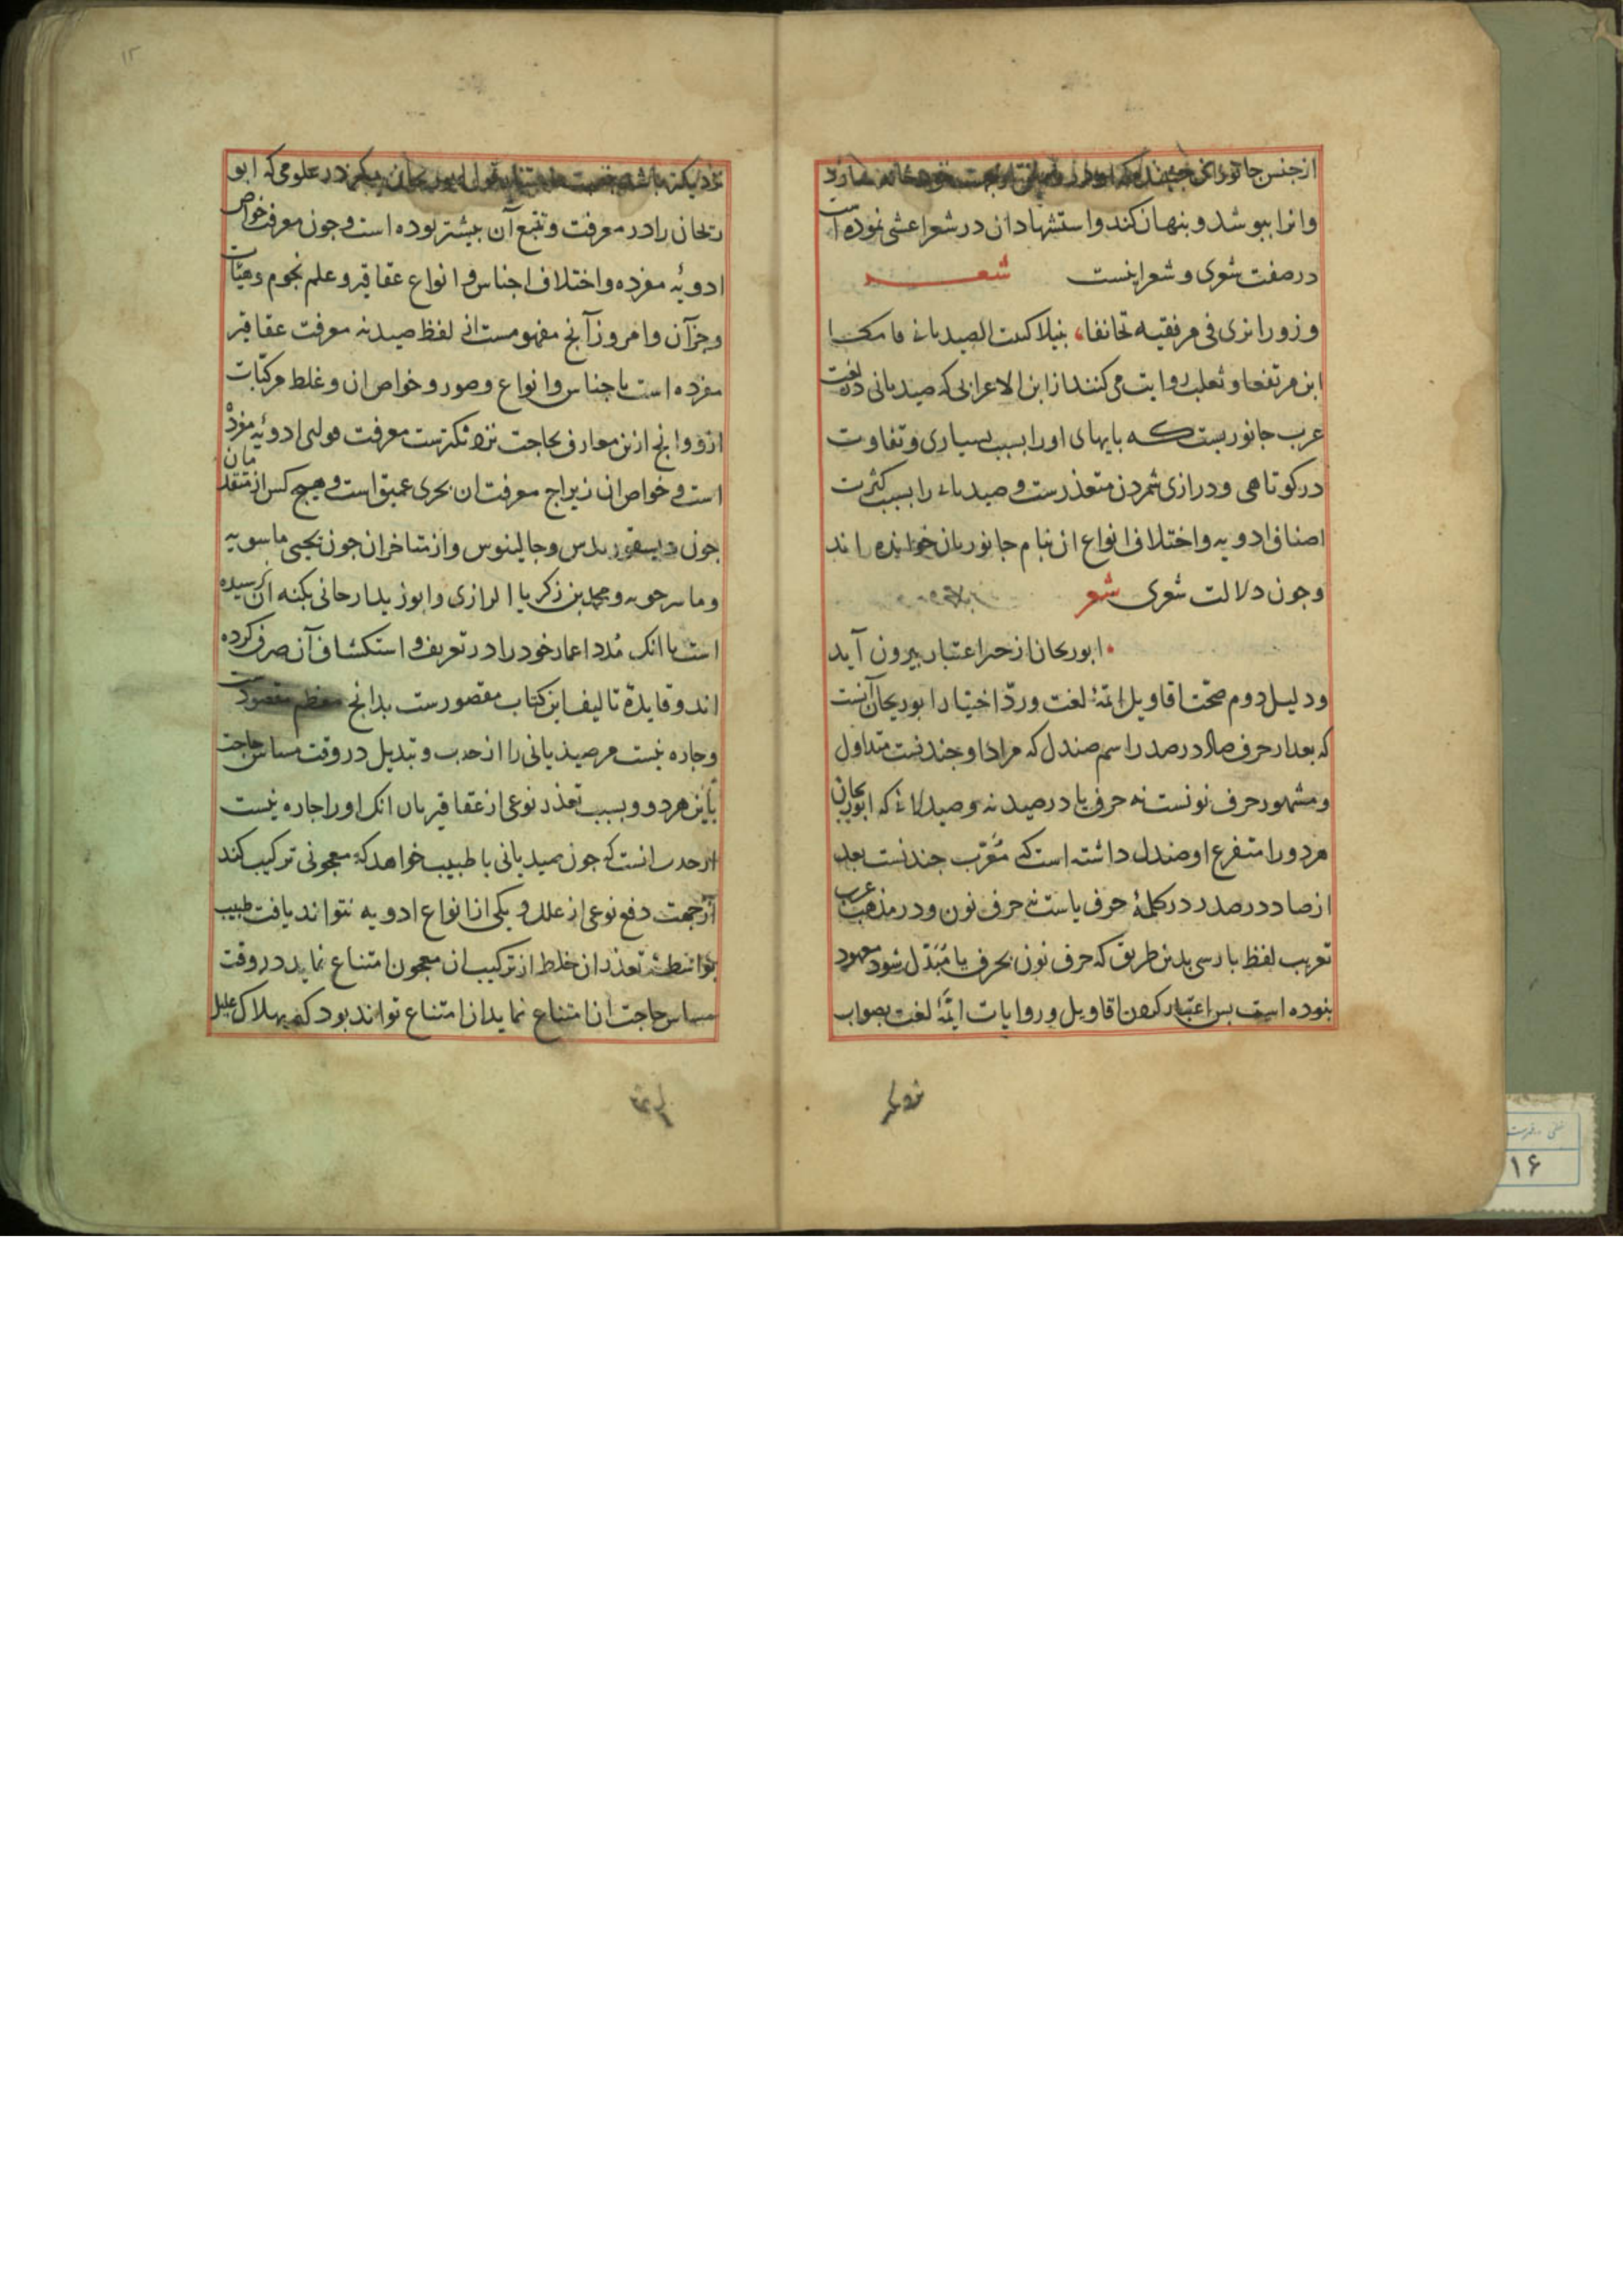 از جنس جانوران
وانرا ببوشد و بنهان کند و استشهاد ان در شعر اعشی نموده است
در صفت شوری و شعر اینست شعر
و زورا تری فی مرفقیه تجانفا، بنیلا کبت الصیدنانی
ابن مرتفعا و ثعلب روایت می کنند از ابن الاعرابی که صیدنانی در لغت
عرب جانوریست که بایهای او را بسبب بسیاری و تفاوت
در کوتاهی و درازی شمردن متعذرست و صیدنانی را بسبب کثرت
اصناف ادویه و اختلاف انواع ان بنام جانور بان خوانده اند
و جون دلالت شعری شعر
ابوریحان از حیز اعتبار بیرون آید
و دلیل دوم صحّت اقاویل ائمّهٔ لغت و ردّ اختیار ابوریحان آنست
که بعد از حرف صاد در صدر اسم صندل که مراد او جندنست متداول
و مشهور حرف نونست نه حرف یا در صیدنه و صیدلانی که ابوریحان
هر دو را متفرع او صندل داشته است که مُعَرّب جندنست بعد
از صاد در صدر در کلمهٔ حرف یاست نه حرف نون و در مذهب عرب
تعریب لفظ بارسی بدین طریق که حرف نون بحرف یا مُبَدّل شود معهود
بنوده است بس اعتبار کردن اقاویل و روایات ایمّهٔ لغت بصواب
نزدیکتر
نزدیکتر باشد در علومی که ابو
ریحان را در معرفت و تتبع آن بیشتر بوده است و جون معرفت خواص
ادویهٔ مفرده و اختلاف اجناس و انواع عقاقیر و علم نجوم و هیّات
و جزآن و امروز آنج مفهومست از لفظ صیدنه معرفت عقاقیر
مفرده است باجناس و انواع و صور و خواص ان و غلط مرکبّات
ازو و انج ازین معارف بحاجت نزدیکترست معرفت قوای ادویهٔ مفرده
است و خواص ان زیراج معرفت ان بحری عمیق است و هیج کس از متقدمان
جون دیسقوریدس و جالینوس و از متاخران جون یحیی ماسویه
و ماسرجویه و محمد بن زکریا الرازی و ابوزید ارجانی بکنه ان نرسیده
است با انک مُدد اعمار خود را در تعریف و استکشاف آن صرف کرده
اند و فایدهٔ تالیف این کتاب مقصورست بدانج معظم مقصودست
و جاره نیست مر صیدنانی را از حذف و تبدیل در وقت مساس حاجت
باین هر دو و بسبب تعذر نوعی از عقاقیر بان انک او را جاره نیست
از حذف انست که جون صیدنانی یا طبیب خواهد که معجونی ترکیب کند
از جهت دفع نوعی از علل و یکی از انواع ادویه نتواند یافت طبیب
بواسطهٔ تعذر ان خلط از ترکیب ان معجون امتناع نماید در وقت
مساس حاجت ان امتناع نماید ان امتناع تواند بود که بهلاک علیل